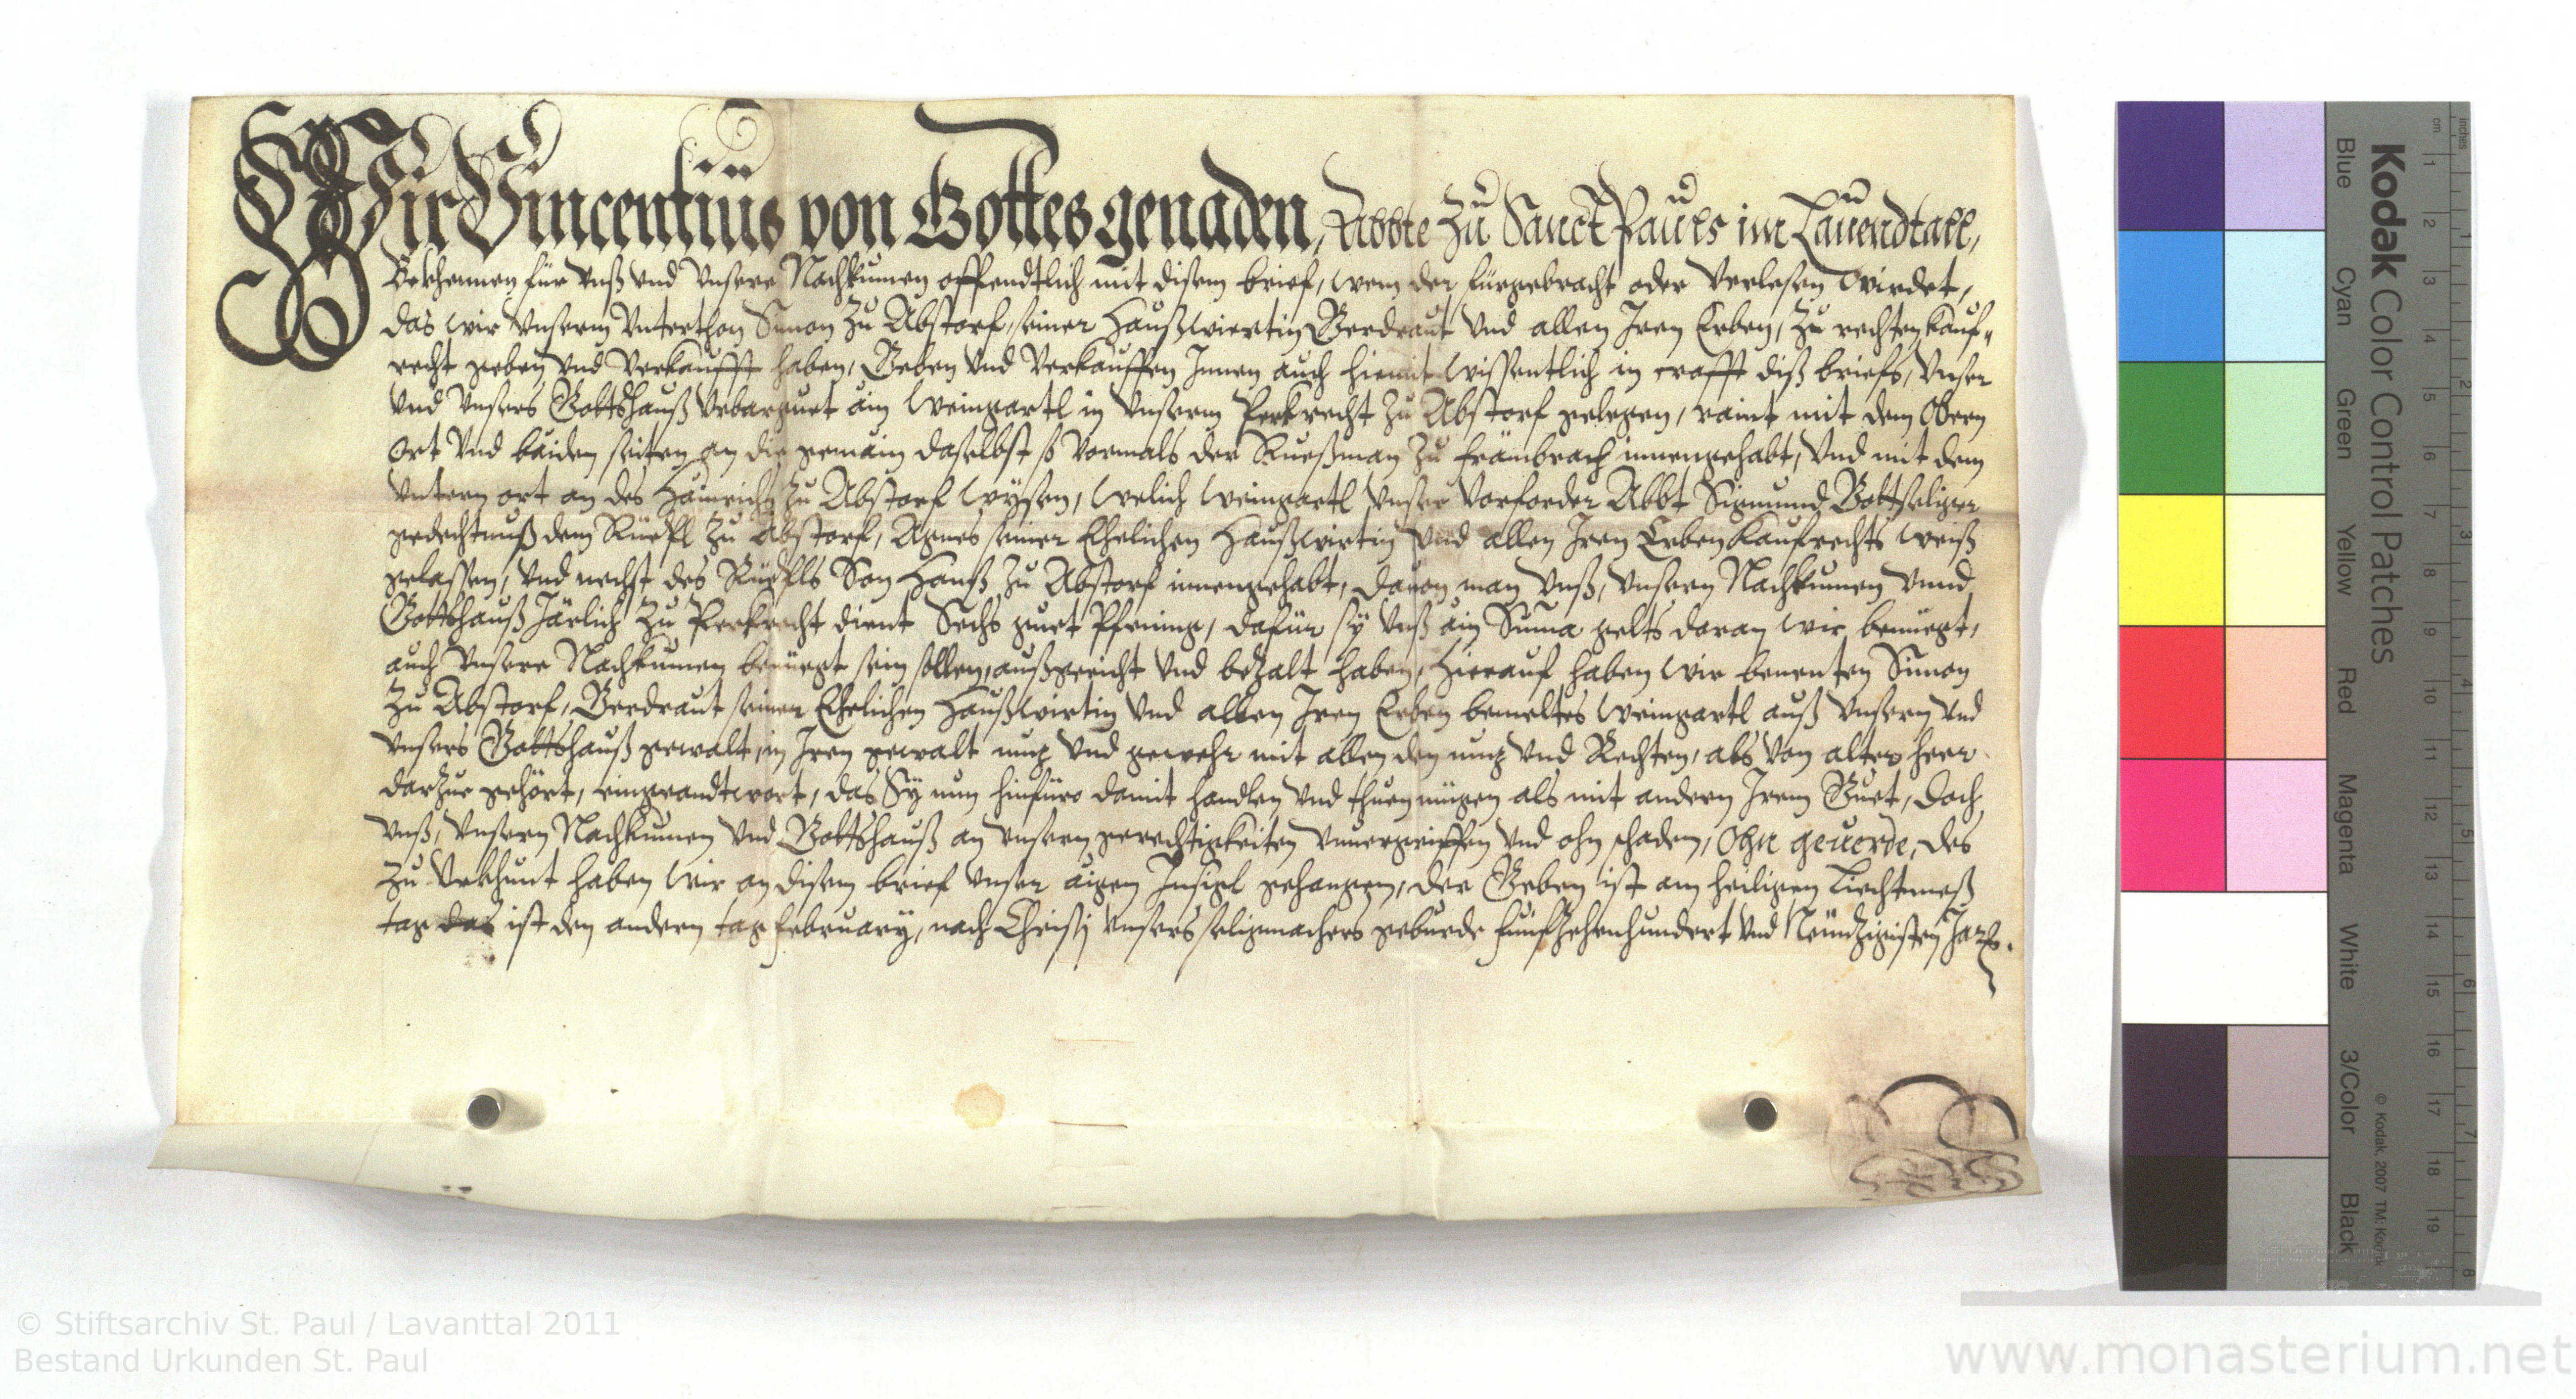 Wir Vincentius von Gottes genaden, Abbte zu Sanct Pauls im Lauendtall,
Bekhennen für vnß vnd vnsere Nachkumen offendtlich mit disem brief, wem der fürgebracht oder verlesen wirdet,
das wir vnserm vnterthon Simon zu Abstorf, seiner Haußwiertin Gerdraut vnd allen Iren Erben, zu rechten kauf-
recht geben vnd verkaufft haben, Geben vnd verkauffen Innen auch hiemit wissentlich in crafft diß briefs, vnser
vnd vnsers Gottshauß vrbarguet ain weingartl in vnserm Perkrecht zu Abstorf gelegen, raint mit dem Obern
ort vnd baiden seiten an die gemain daselbst so vormals der Rueßman zu Främbrach innengehabt, vnd mit dem
vntern ort an des Hainrichs zu Abstorf wysen, welich weingartl vnser vorforder Abbt Sigmund Gottseliger
gedechtnuß dem Rüepl zu Abstorf, Agnes seiner Ehelichen Haußwirtin vnd allen Iren Erben kaufrechts weiß
gelassen, vnd nechst des Rüepls Son Hanß zu Abstorf innengehabt, dauon man vnß, vnsern Nachkumen vnnd
Gottshauß Järlich zu Perkrecht dient Sechs guet Pfening, dafür sy vnß ain Suma gelts daran wir benüegt,
auch vnsere Nachkumen benüegt sein sollen, außgericht vnd bezalt haben, Hierauf haben wir benenten Simon
zu Abstorf, Gerdraut seiner Ehelichen Haußwirtin vnd allen Iren Erben bemeltes weingartl auß vnsern vnd
vnsers Gottshauß gewalt, in Iren gewalt nutz vnd gewehr mit allen den nutz vnd Rechten, als von alter heer
darzue gehört, eingeandtwort, das Sy nun hinfüro damit handlen vnd thuen mügen als mit andern Irem Guet, doch
vnß, vnsern Nachkumen vnd Gottshauß an vnsern gerechtigkeiten vnuergriffen vnd ohn schaden, Ohn geuerde, des
zu Vrkhunt haben wir an disem brief vnser aigen Insigl gehangen, der Geben ist am heiligen Liechtmeß
tag das ist den andern tag February, nach Christi vnsers seligmachers geburde funfzehenhundert vnd Neundzigisten Jars.
Kodak Color Control Patches
Blue Cyan Green Yellow Red Magenta White 3/Color Black
© Kodak, 2007 TM: Kodak
inches 1 2 3 4 5 6 7 8
cm 1 2 3 4 5 6 7 8 9 10 11 12 13 14 15 16 17 18 19
© Stiftsarchiv St. Paul / Lavanttal 2011
Bestand Urkunden St. Paul
www.monasterium.net